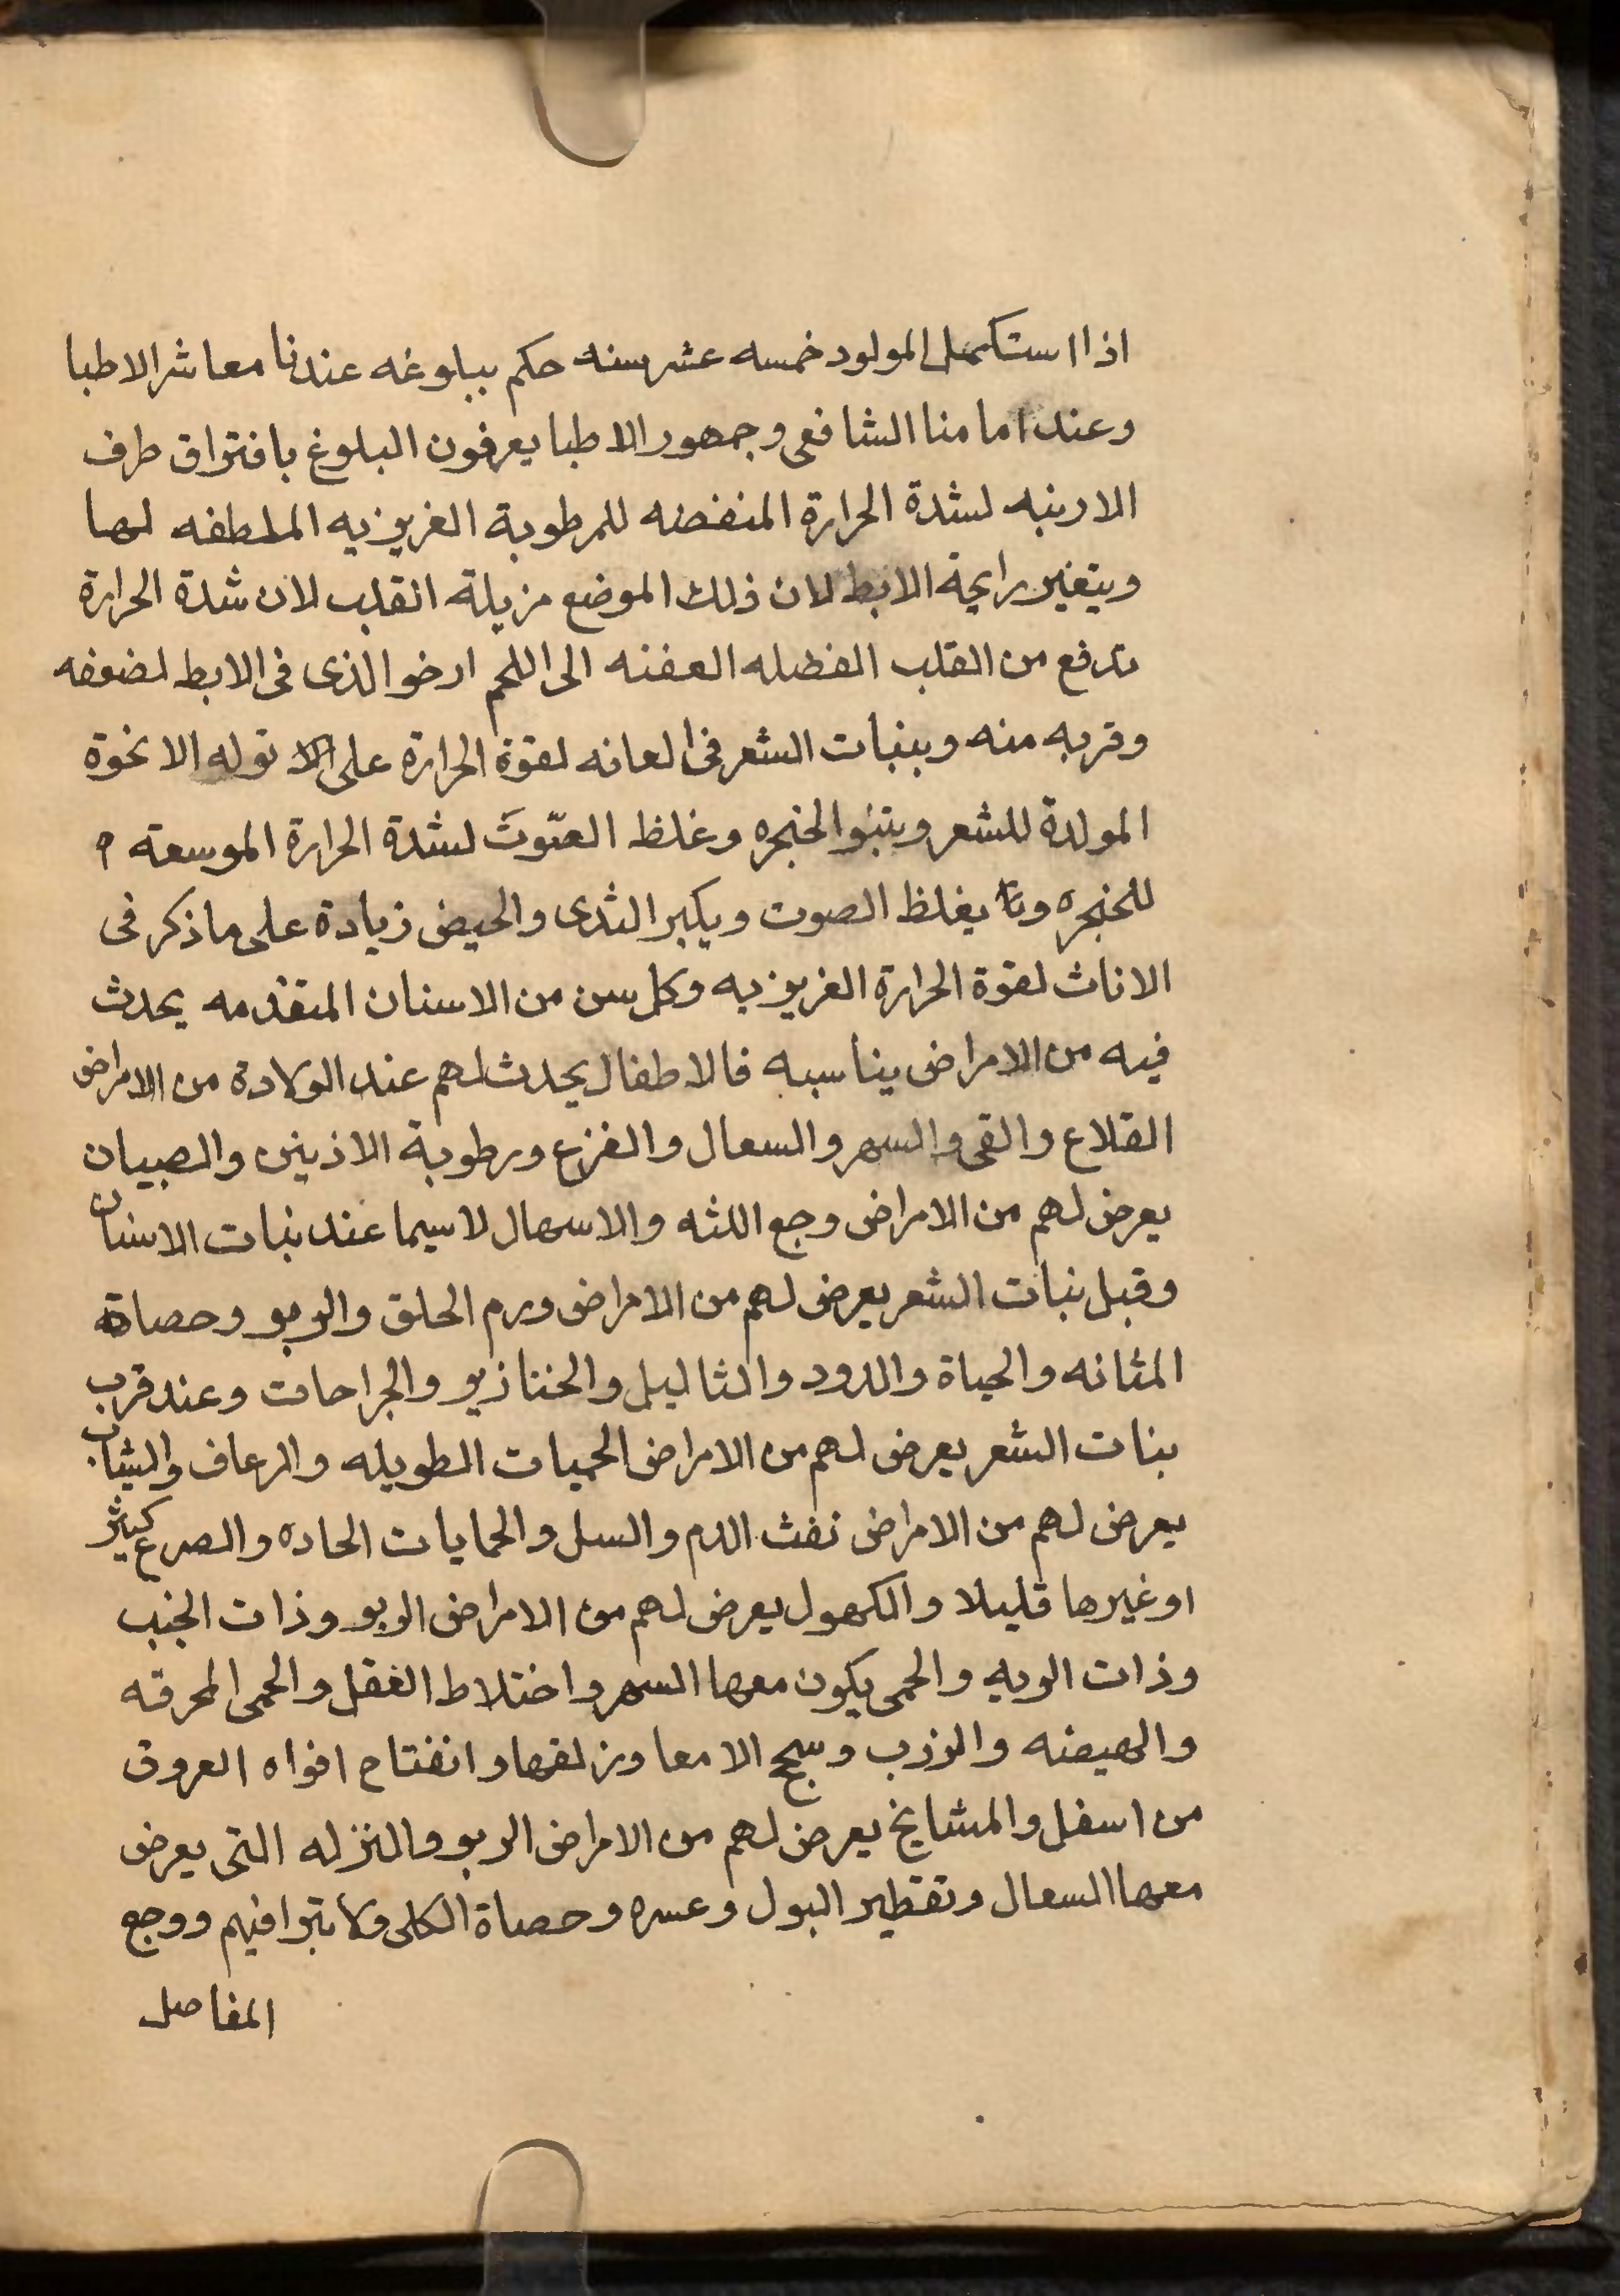 اذا استكمل المولود خمسه عشر سنه حكم ببلوغه عندنا معاشر الاطبا
وعند امامنا الشافعى وجمهور الاطبا يعرفون البلوغ بافتراق طرف
الارنبه لشدة الحرارة المنفضه للرطوبة الغريزيه الملطفه لها
ويتغير رايحة الابط لان ذلك الموضع مزبلة القلب لان شدة الحرارة
تدفع من القلب الفضله العفنه الى اللحم ارخو الذى فى الابط لضعفه
وقربه منه وبنبات الشعر فى العانه لقوة الحرارة على توله الابخرة
المولدة للشعر وبنتو الحنجره وغلظ الصوت لشدة الحرارة الموسعة
للحنجره يغلظ الصوت ويكبر الثدى والحيض زيادة على ماذكر فى
الاناث لقوة الحرارة الغريزيه وكل سن من الاسنان المتقدمه يحدث
فيه من الامراض يناسبه فالاطفال يحدث لهم عند الولادة من الامراض
القلاع والقى والسهر والسعال والفزع ورطوبة الاذنين والصبيان
يعرض لهم من الامراض وجع اللثه والاسهال لاسيما عند نبات الاسنان
وقبل نبات الشعر يعرض لهم من الامراض ورم الحلق والربو وحصاة
المثانه والحياة والدود والثاليل والخنازير والجراحات وعند قرب
بنات الشعر يعرض لهم من الامراض الحميات الطويله والرعاف والشاب
يعرض لهم من الامراض نفث الدم والسل والحمايات الحاده والصرع كثير
اوغيرها قليلا والكهول يعرض لهم من الامراض الربو وذات الجنب
وذات الريه والحمى يكون معها السهر واختلاط العقل والحمى المحرقه
والهيضه والذرب وسحج الامعا وزلقها وانفتاح افواه العروق
من اسفل والمشايخ يعرض لهم من الامراض الربو والنزله التى يعرض
معها السعال وتقطير البول وعسره وحصاة الكلى ولا تبرا فيهم ووجع
المفاصل